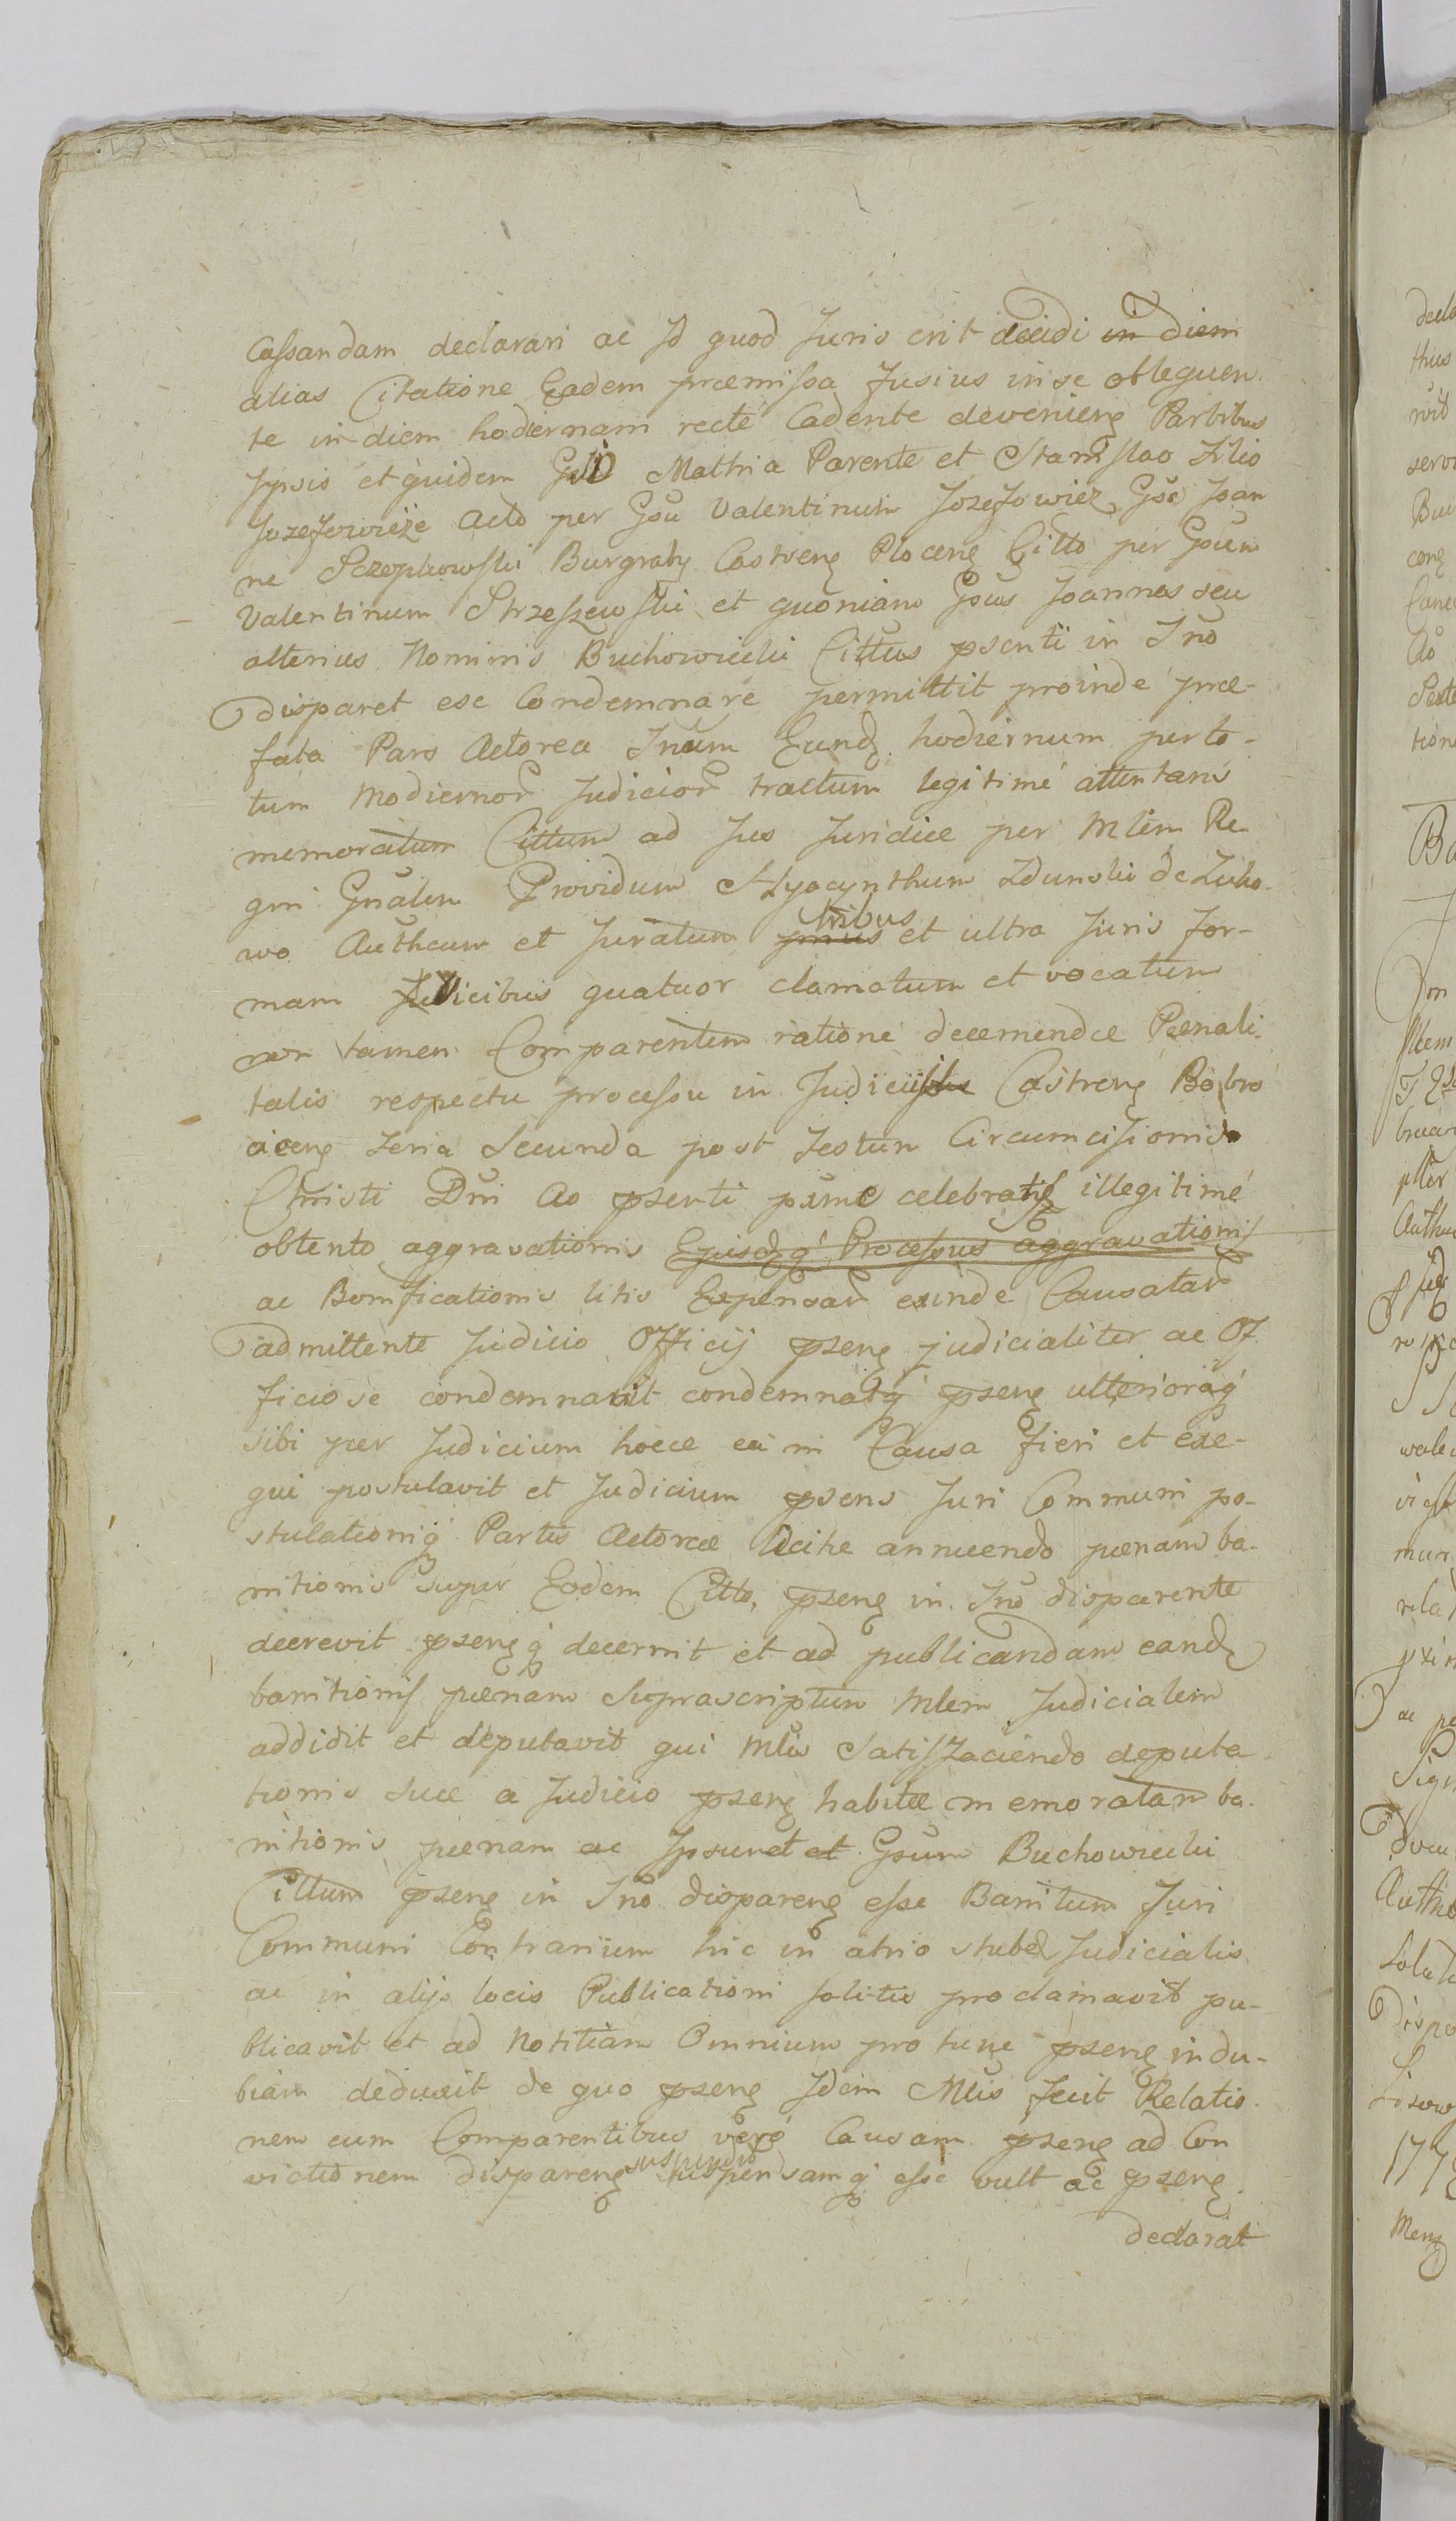 Cassandam declarari ac Id quod Juris erit decidi in diem
alias Citatione Eadem præmissa fusius in se obloquen-
te in diem hodiernam recté Cadente devenienẽ Partibus
Ipsis et quidem Gsi Mathia Parente et Stanislao Filio
Jozefowicze Acto per Gsũ Valentinum Jozefowicz Gsõ Joan
ne Sczepkowski Burgraby Castrenẽ Plocenẽ Citto per Gsum
Valentinum Strzeszewski et quoniam Gsus Joannes seu
alterius Nominis Buchowiecki Cittus psenti in Tno
disparet ese Condemnare permittit proinde præ-
fata Pars Actorea Tnum Eundẽ hodiernum per to-
tum modiernor Judicior tractum legitimé attentans
memoratum Cittum ad Jus Juridice per Mlem Re
gni Gnalem Providum Hyacynthum Zdunski de Zuko-
wo Authcum et Juratum tribus et ultra Juris for-
mam Vicibus quatuor clamatum et vocatum
non tamen Comparentem ratione decernendæ Pænali-
talis respectu processu in Judiciis Castrenẽ Bobro
nicenẽ Feria Secunda post Festum Circumcisionis
Christi Dni Ao psenti pxime celebratis illegitimé
obtento aggravationis Ejusdẽq Processus aggravationis
ac Bonificationis litis Expensar exinde Causatar
admittente Judicio Officij psenẽ judicialiter ac Of
ficiose condemnavit condemnatq psenẽ ulterioraq
sibi per Judicium hocce eá in Causa fieri et exe-
qui postulavit et Judicium psens Juri Communi po-
stulationiq Partis Actoreæ Rcihe annuendo pænam ba-
nitionis super Eodem Citto psenẽ in Tno disparente
decrevit psenẽq decernit et ad publicandam eandẽ
banitionis pænam Suprascriptum Mlem Judicialem
addidit et deputavit qui Mlis Satisfaciendo deputa-
tionis suæ a Judicio psenẽ habitæ memoratam ba-
nitionis pænam ac Ipsumet et Gsum Buchowiecki
Cittum psenẽ in Tno disparenẽ esse Banitum Juri
Communi Contrarium hic in atrio stubæ Judicialis
ac in alijs locis Publicationi solitis proclamavit pu-
blicavit et ad Notitiam Omnium pro tunc psenẽ indu-
biam deduxit de quo psenẽ Idem Mlis fecit Relatio-
nem cum Comparentibus veró Causam psenẽ ad Con
victionem disparenẽ suspendit suspensamq esse vult ac psenẽ
declarat